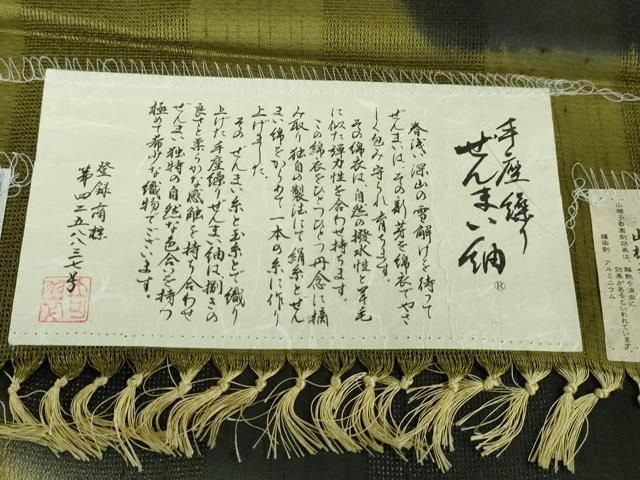 手座繰り
ぜんまい紬®
春浅い深山の雪解けを待って
ぜんまいは、その新芽を綿衣でやさ
しく包み守られ育ちます。
その綿衣は自然の撥水性と羊毛
に似た弾力性を合わせ持ちます。
この綿衣をひとつひとつ丹念に摘
み取り独自の製法にて絹糸とぜん
まい綿をからめて一本の糸に作り
上げました。
その ぜんまい糸と玉糸とで織り
上げた手座繰りぜんまい紬は捌きの
良さと柔らかな感触を持ち合わせ
ぜんまい独特の自然な色合いを持つ
極めて希少な織物でございます。
登録商標
第四二五八八三七号
山梔子
山梔子着蒸剤効果は、
解熱や消炎に
効果があるといわれています
媒染剤 アルミニウム